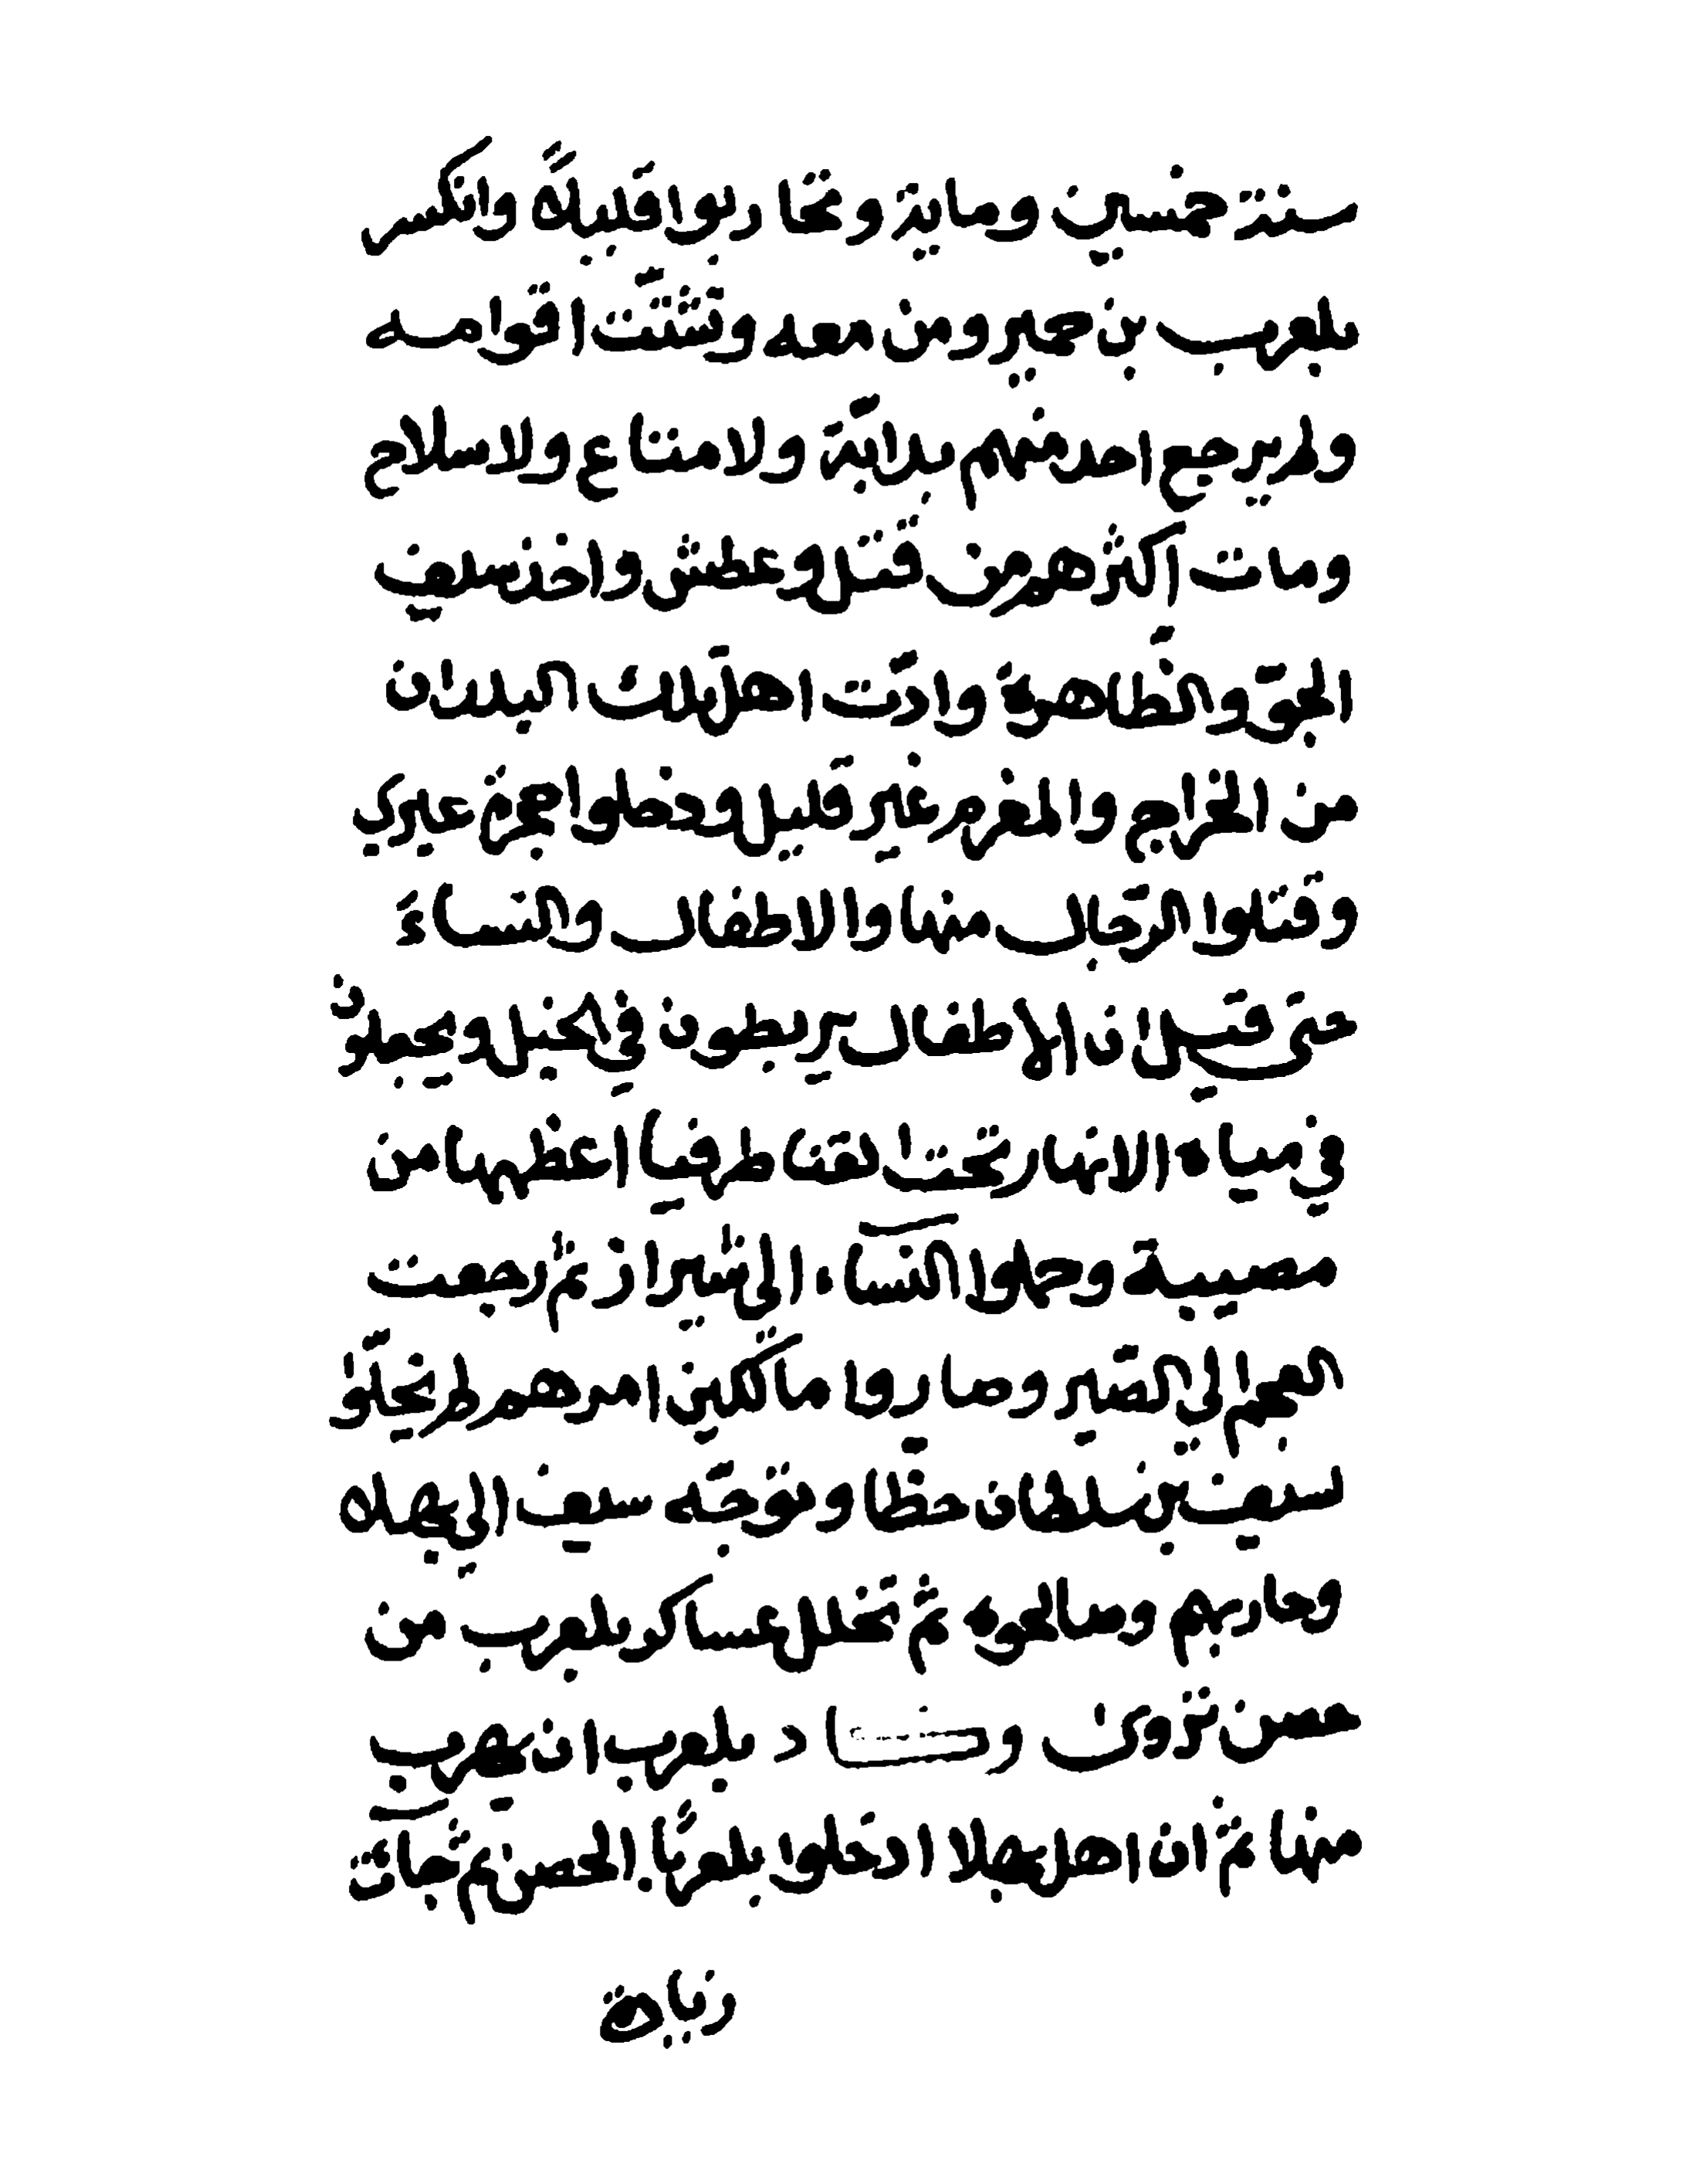 سنة خمسين ومایة وتحاربوا قليلاً وانكسر
بلعرب بن حمير ومن معه وتشتّت اقوامه
ولم يرجع احد منهم بدابّة ولا متاع ولا سلاح
ومات اكثرهم من قتل وعطش واخذ سيف
الجوّ والظّاهرة وادّت اهل تلك البلدان
من الخراج والمغرم غير قليل ودخلوا حجرة عبري
وقتلوا الرّجال منها والاطفال والنساءَ
حتى قيل ان الاطفال يربطون في الحبل ويجعلون
في مياه الانهار تحت القناطر فيا اعظمها من
مصيبة وحملوا النّساء الى شيراز ثم رجعت
العجم الى الصّير وصاروا مالكين امرهم لم يخلّوا
لسيف بن سلطان حظّا وتوجّه سيف الى بهلاه
وحاربهم وصالحوه ثم تخلل عساكر بلعرب من
حصن نزوى و اد بلعرب ان يهرب
منها ثم ان اهل بهلا ادخلوا بلعربًا الحصن ثم جاءت
زيادة